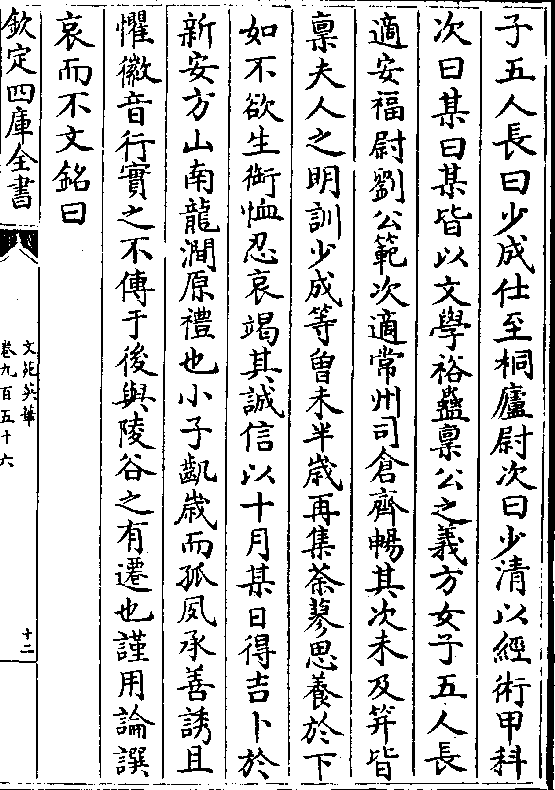 子五人長曰少成仕至桐廬尉次曰少清以經術甲科
次曰某曰某皆以文學裕蠱稟公之義方女子五人長
適安福尉劉公範次適常州司倉齊暢其次未及笄皆
稟夫人之明訓少成等曾未半歲再集荼蓼思養於下
如不欲生銜恤忍哀竭其誠信以十月某日得吉卜於
新安方山南龍澗原禮也小子齓歲而孤夙承善誘且
懼徽音行實之不傳于後與陵谷之有遷也謹用論譔
哀而不文銘曰
欽定四庫全書
文苑英華
卷九百五十六
十二